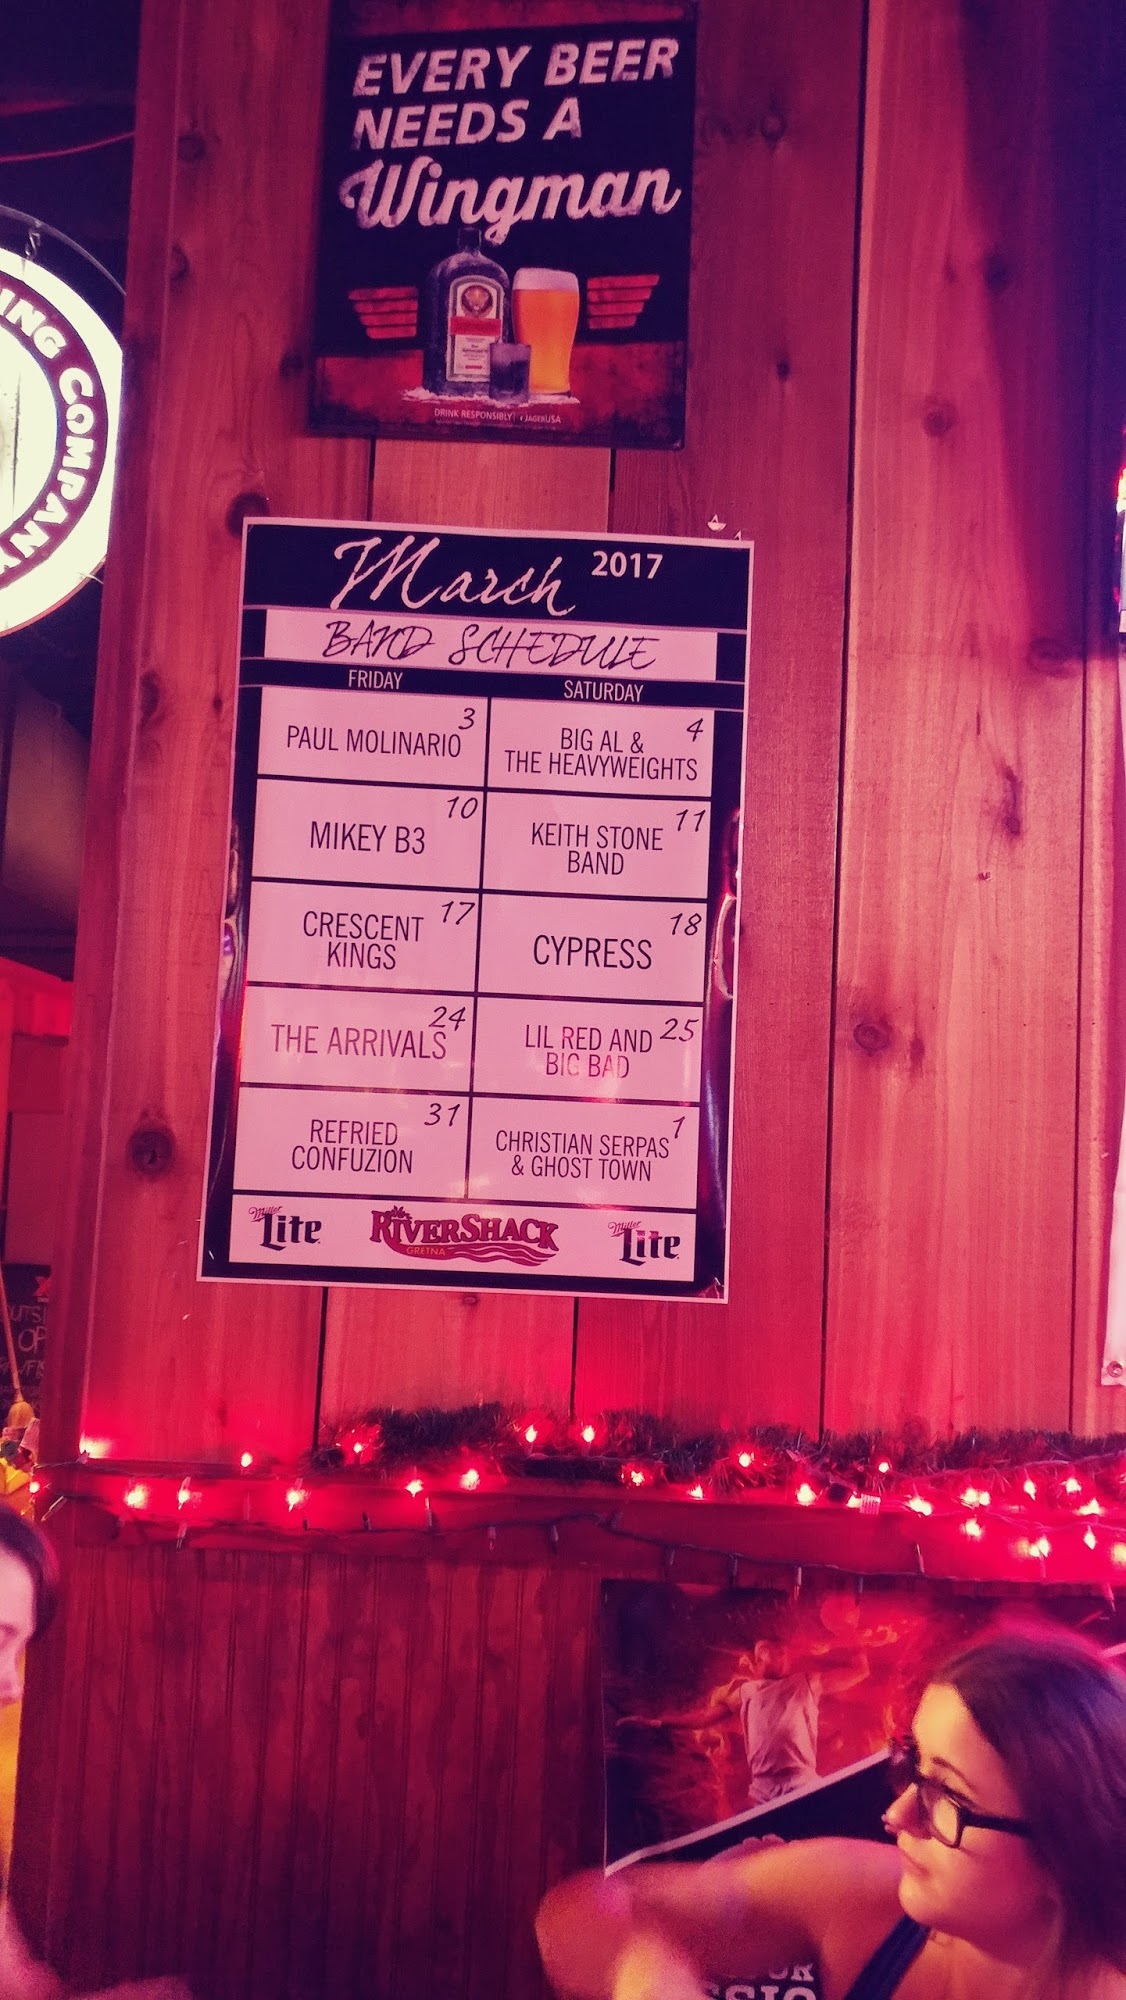 EVERY BEER
NEEDS A
Wingman
DRINK RESPONSIBLY
JAGERUSA
ING COMPANY
March 2017
BAND SCHEDULE
FRIDAY SATURDAY
3
PAUL MOLINARIO
4
BIG AL &
THE HEAVYWEIGHTS
10
MIKEY B3
11
KEITH STONE
BAND
17
CRESCENT
KINGS
18
CYPRESS
24
THE ARRIVALS
25
LIL RED AND
BIG BAD
31
REFRIED
CONFUZION
1
CHRISTIAN SERPAS
& GHOST TOWN
Miller
Lite
RIVERSHACK
GRETNA
Miller
Lite